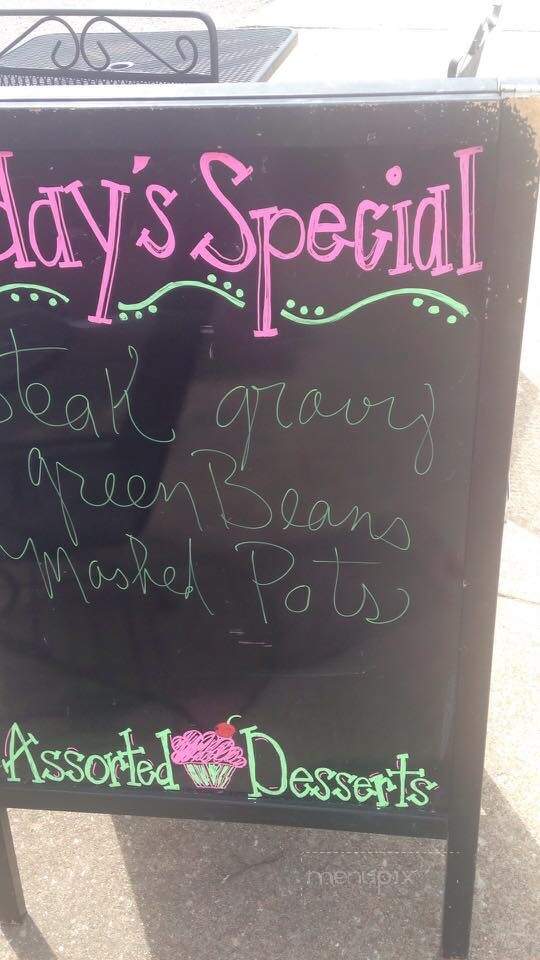 day's Special
teak gravy
green Beans
mashed Pots
Assorted Desserts
menupix